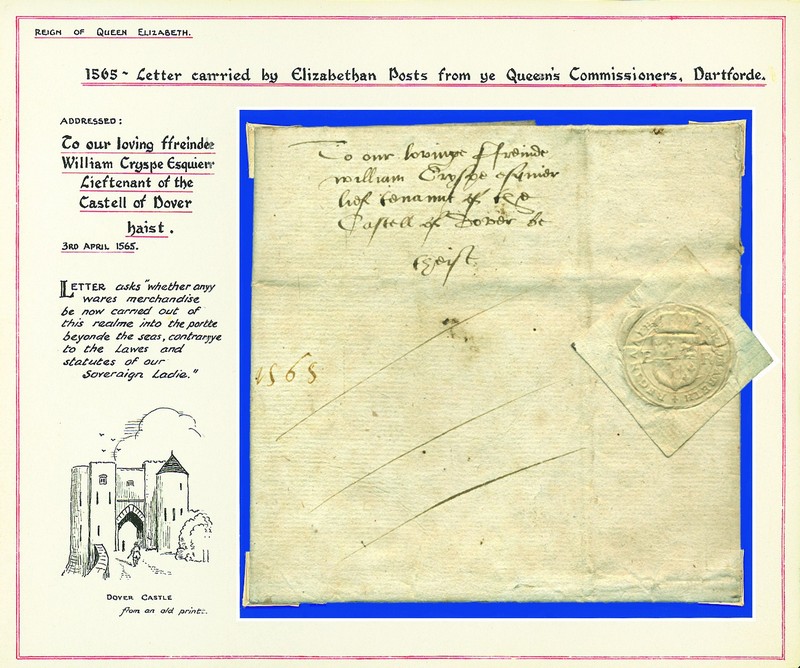 REIGN OF QUEEN ELIZABETH.
1565~ Letter carried by Elizabethan Posts from ye Queen's Commissioners, Dartforde.
ADDRESSED:
To our loving ffreinde
William Cryspe Esquierr
Lieftenant of the
Castell of Dover
haist.
3RD APRIL 1565.
LETTER asks "whether anyy
wares merchandise
be now carried out of
this realme into the portte
beyonde the seas, contrarrye
to the Lawes and
statutes of our
Soveraign Ladie."
DOVER CASTLE
from an old print.
To our lovinge ffreinde
William Cryspe esquier
lieftenannt of the
Castell of Dover be
theist
1565